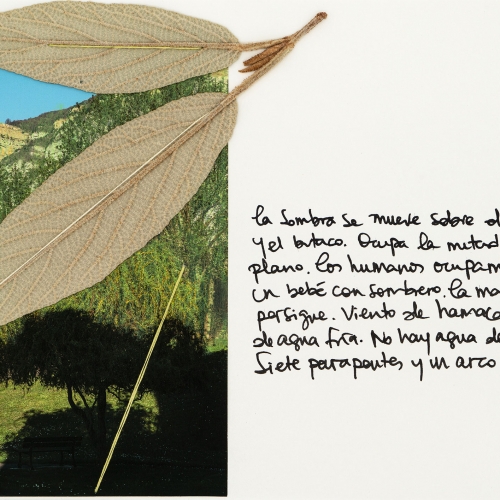 la sombra se mueve sobre el
y el butaco. Ocupa la mitad
plano. Los humanos ocupam
un bebé con sombrero. La ma
persigue. Viento de hamaca
de agua fría. No hay agua de
Siete parapentes y un arco